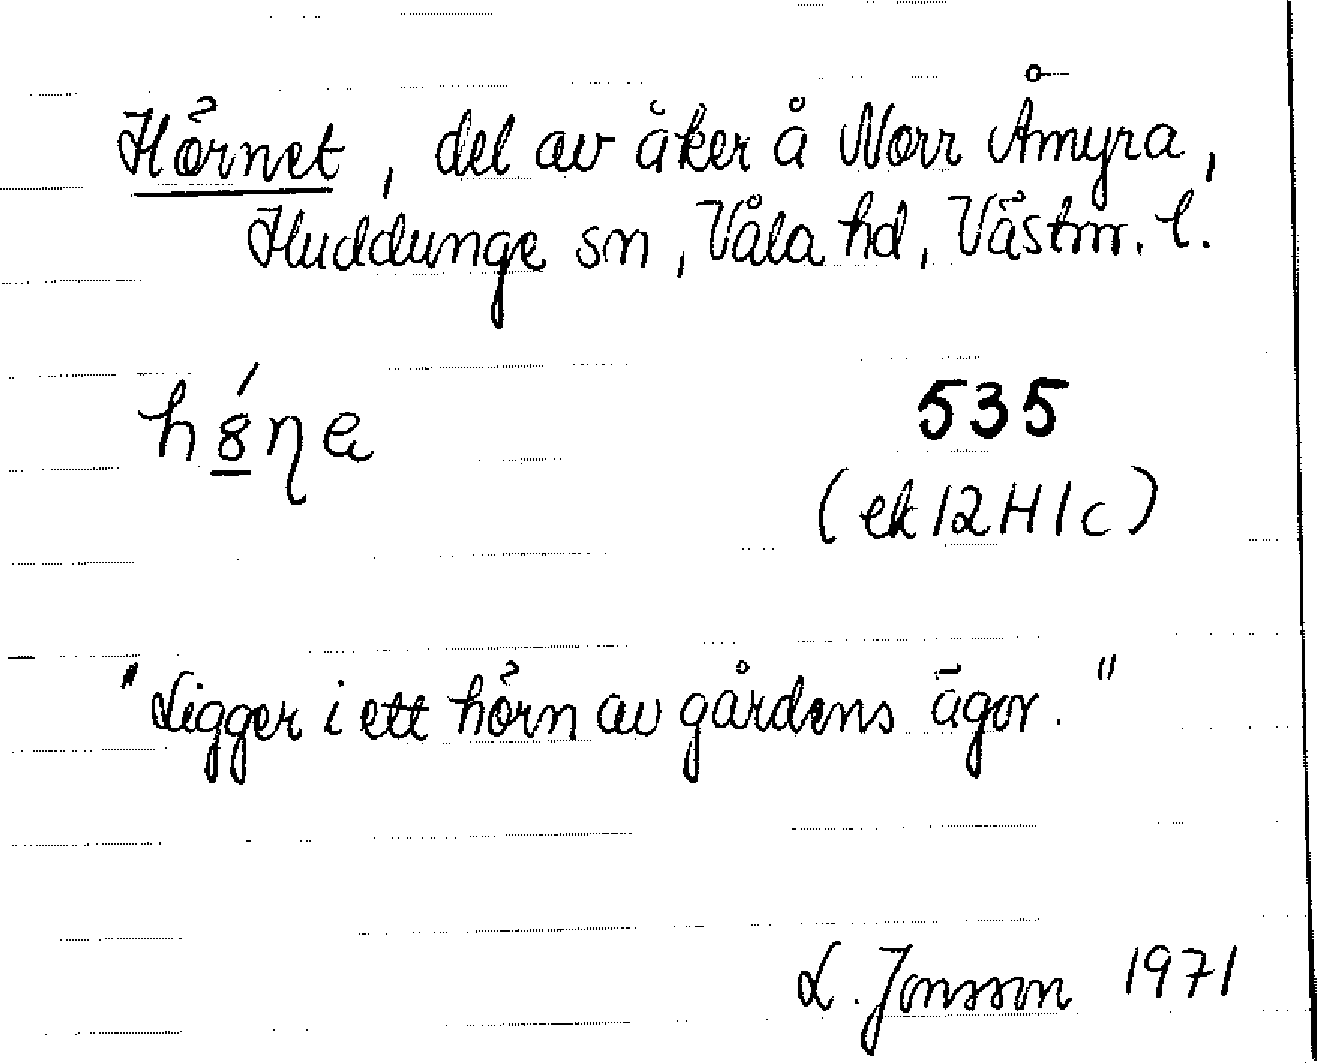 Hörnet, del av åker å Norr Åmyra,
Huddunge sn, Våla hd, Västm. l.
hǿ̱ɳe
535
(ek 12H1c)
"Ligger i ett hörn av gårdens ägor."
L. Jonsson 1971